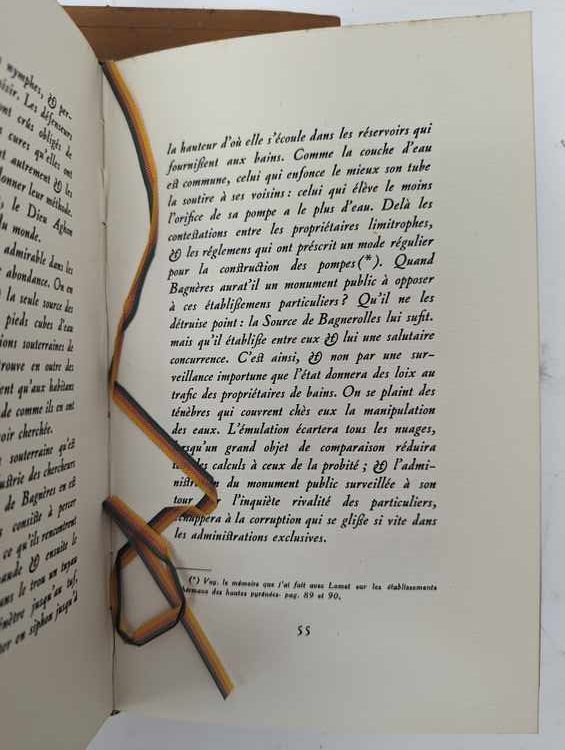 nymphes, & per-
Les défenseurs
crûs obligés de
cures qu'elles ont
autrement & les
donner leur méthode.
le Dieu Aghon
du monde.
admirable dans les
abondance. On en
la seule source des
pieds cubes d'eau
souterraines de
trouve en outre des
qu'aux habitans
de comme ils en ont
cherchée.
souterraine qu'il
des chercheurs
de Bagnères en est
consiste à percer
ce qu'ils rencontrent
& ensuite le
dans le trou un tuyau
jusqu'au tuf,
en siphon jusqu'à
la hauteur d'où elle s'écoule dans les réservoirs qui
fournissent aux bains. Comme la couche d'eau
est commune, celui qui enfonce le mieux son tube
la soutire à ses voisins : celui qui élève le moins
l'orifice de sa pompe a le plus d'eau. Delà les
contestations entre les propriétaires limitrophes,
& les réglemens qui ont préscrit un mode régulier
pour la construction des pompes (*). Quand
Bagnères aurat'il un monument public à opposer
à ces établissemens particuliers ? Qu'il ne les
détruise point : la Source de Bagnerolles lui sufit.
mais qu'il établisse entre eux & lui une salutaire
concurrence. C'est ainsi, & non par une sur-
veillance importune que l'état donnera des loix au
trafic des propriétaires de bains. On se plaint des
ténèbres qui couvrent chès eux la manipulation
des eaux. L'émulation écartera tous les nuages,
lorsqu'un grand objet de comparaison réduira
les calculs à ceux de la probité ; & l'admi-
du monument public surveillée à son
tour l'inquiète rivalité des particuliers,
échappera à la corruption qui se glisse si vite dans
les administrations exclusives.
(*) Voy. le mémoire que j'ai fait avec Lomet sur les établissements
thermaux des hautes pyrénées. pag. 89 et 90.
55